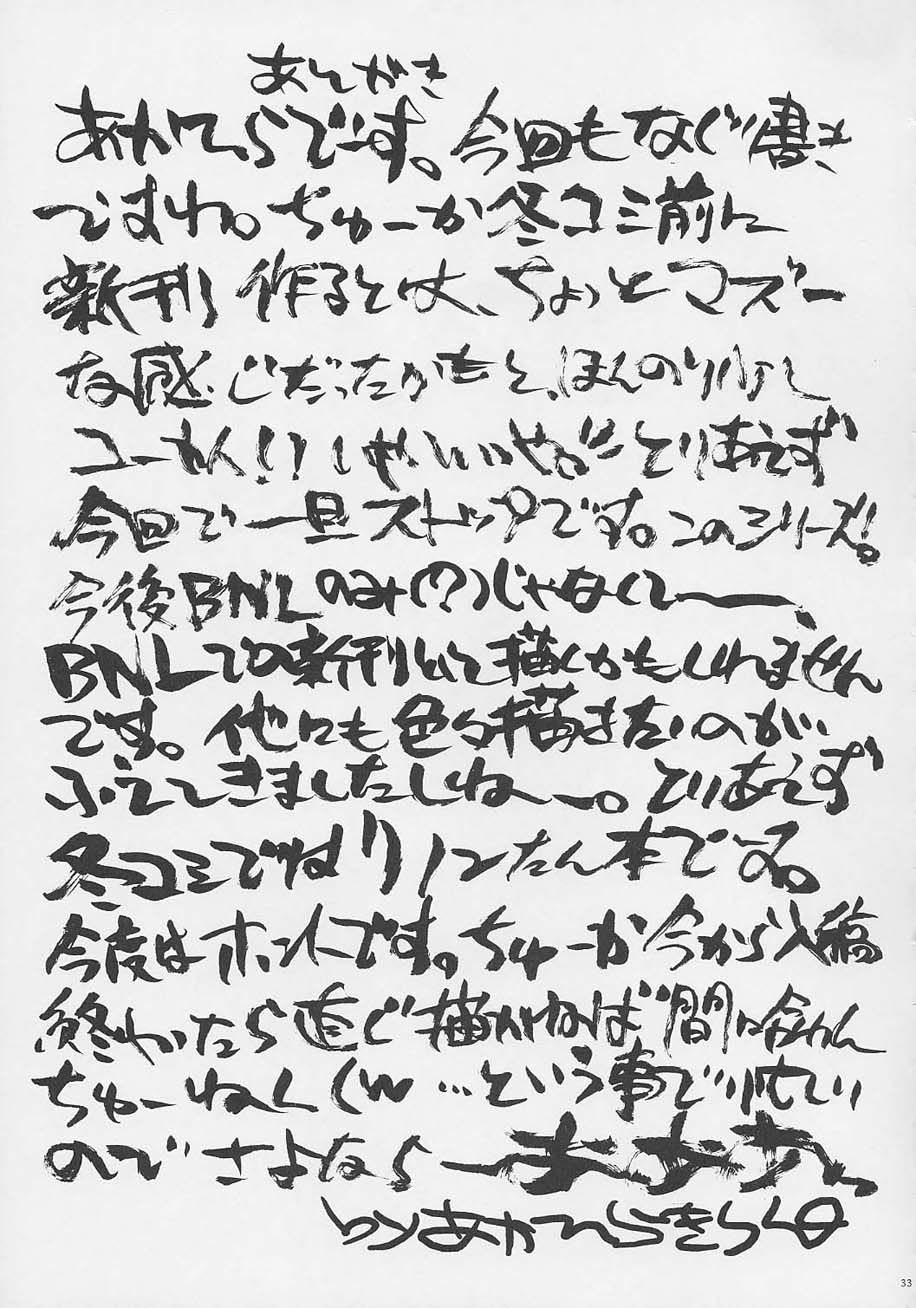 あとがき
あかてんらでーす。今回もなぐり書き
ですね。ちゅーか冬コミ前に
新刊作るとは、ちょっとマズー
な感じだったりもと、ほんのり
とりあえず
今回で一旦ストップです。このシリーズ!。
今後BNLのみ(?)じゃなくて――、
BNLでの新刊として描くかもしれません
です。他にも色々描きたいのが
ふえてきましたしねー。とりあえず
冬コミではリノンたん本でーする。
今度はホントです。ちゅーか今から入稿
終わったら直ぐ描かねば間に合わん
ちゅーねん(w …という事で忙しい
のでさよなら〜
33